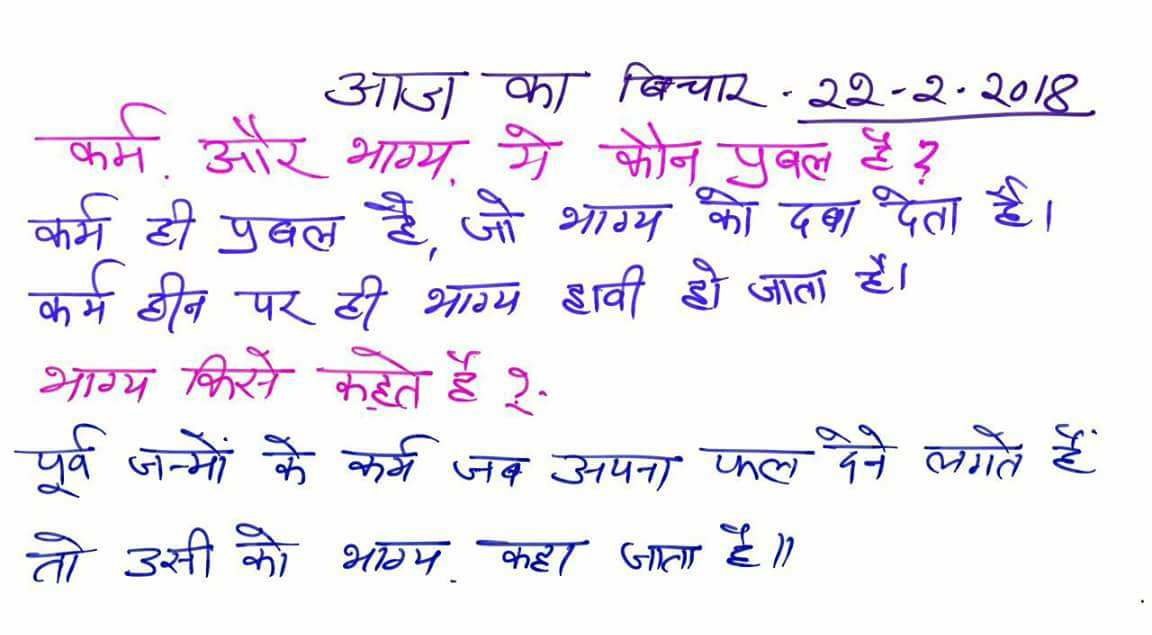 आज का विचार . 22-2.2018
कर्म. और भाग्य. मे कौन प्रबल है?
कर्म ही प्रबल है, जो भाग्य को दबा देता है।
कर्म हीन पर ही भाग्य हावी हो जाता है।
भाग्य किसे कहते है ?.
पूर्व जन्मों के कर्म जब अपना फल देने लगते हैं
तो उसी को भाग्य. कहा जाता है॥